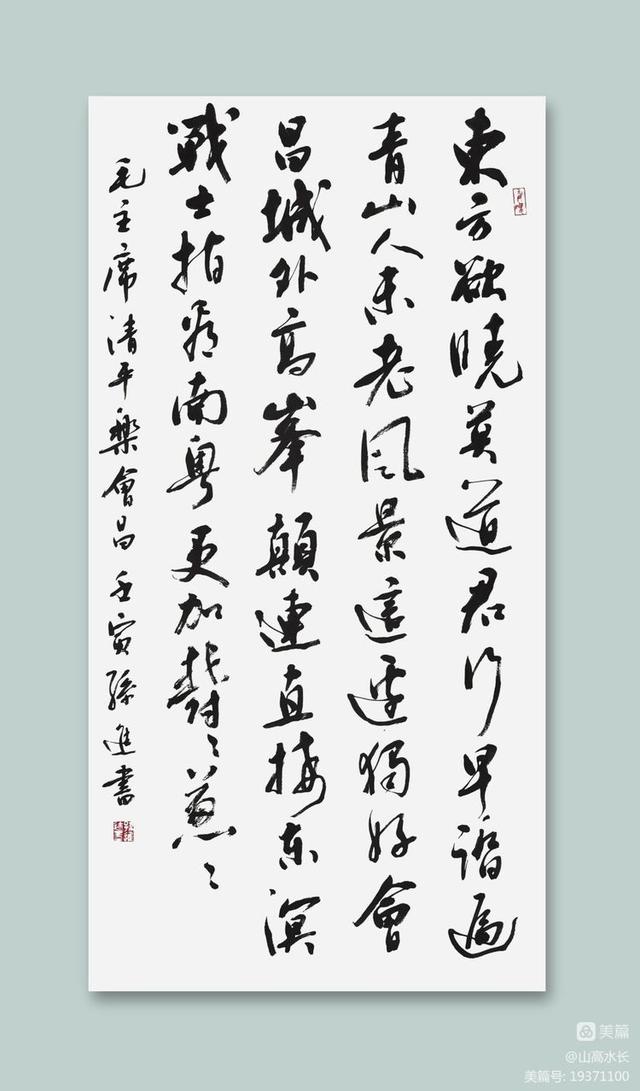 東方欲曉莫道君行早踏遍
青山人未老風景這邊獨好會
昌城外高峯顛連直接东溟
戰士指看南粤更加鬱〻葱〻
毛主席清平樂會昌壬寅孫進書
美篇
@山高水长
美篇号: 19371100